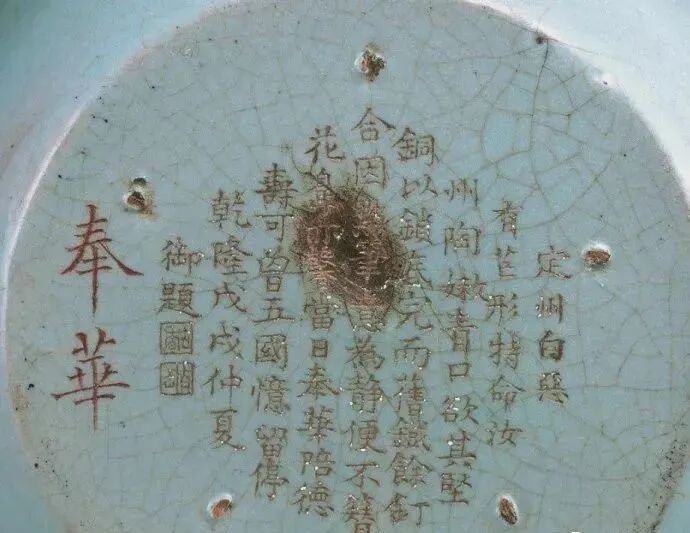 定州白惡
有芒形特命汝
州陶嫩青口欲其堅
銅以鎖底完而舊鐵餘釘
合因筆意為靜便不簪
花鼻亦馨當日奉華陪德
壽可曾五國憶留停
乾隆戊戌仲夏
御題
奉華